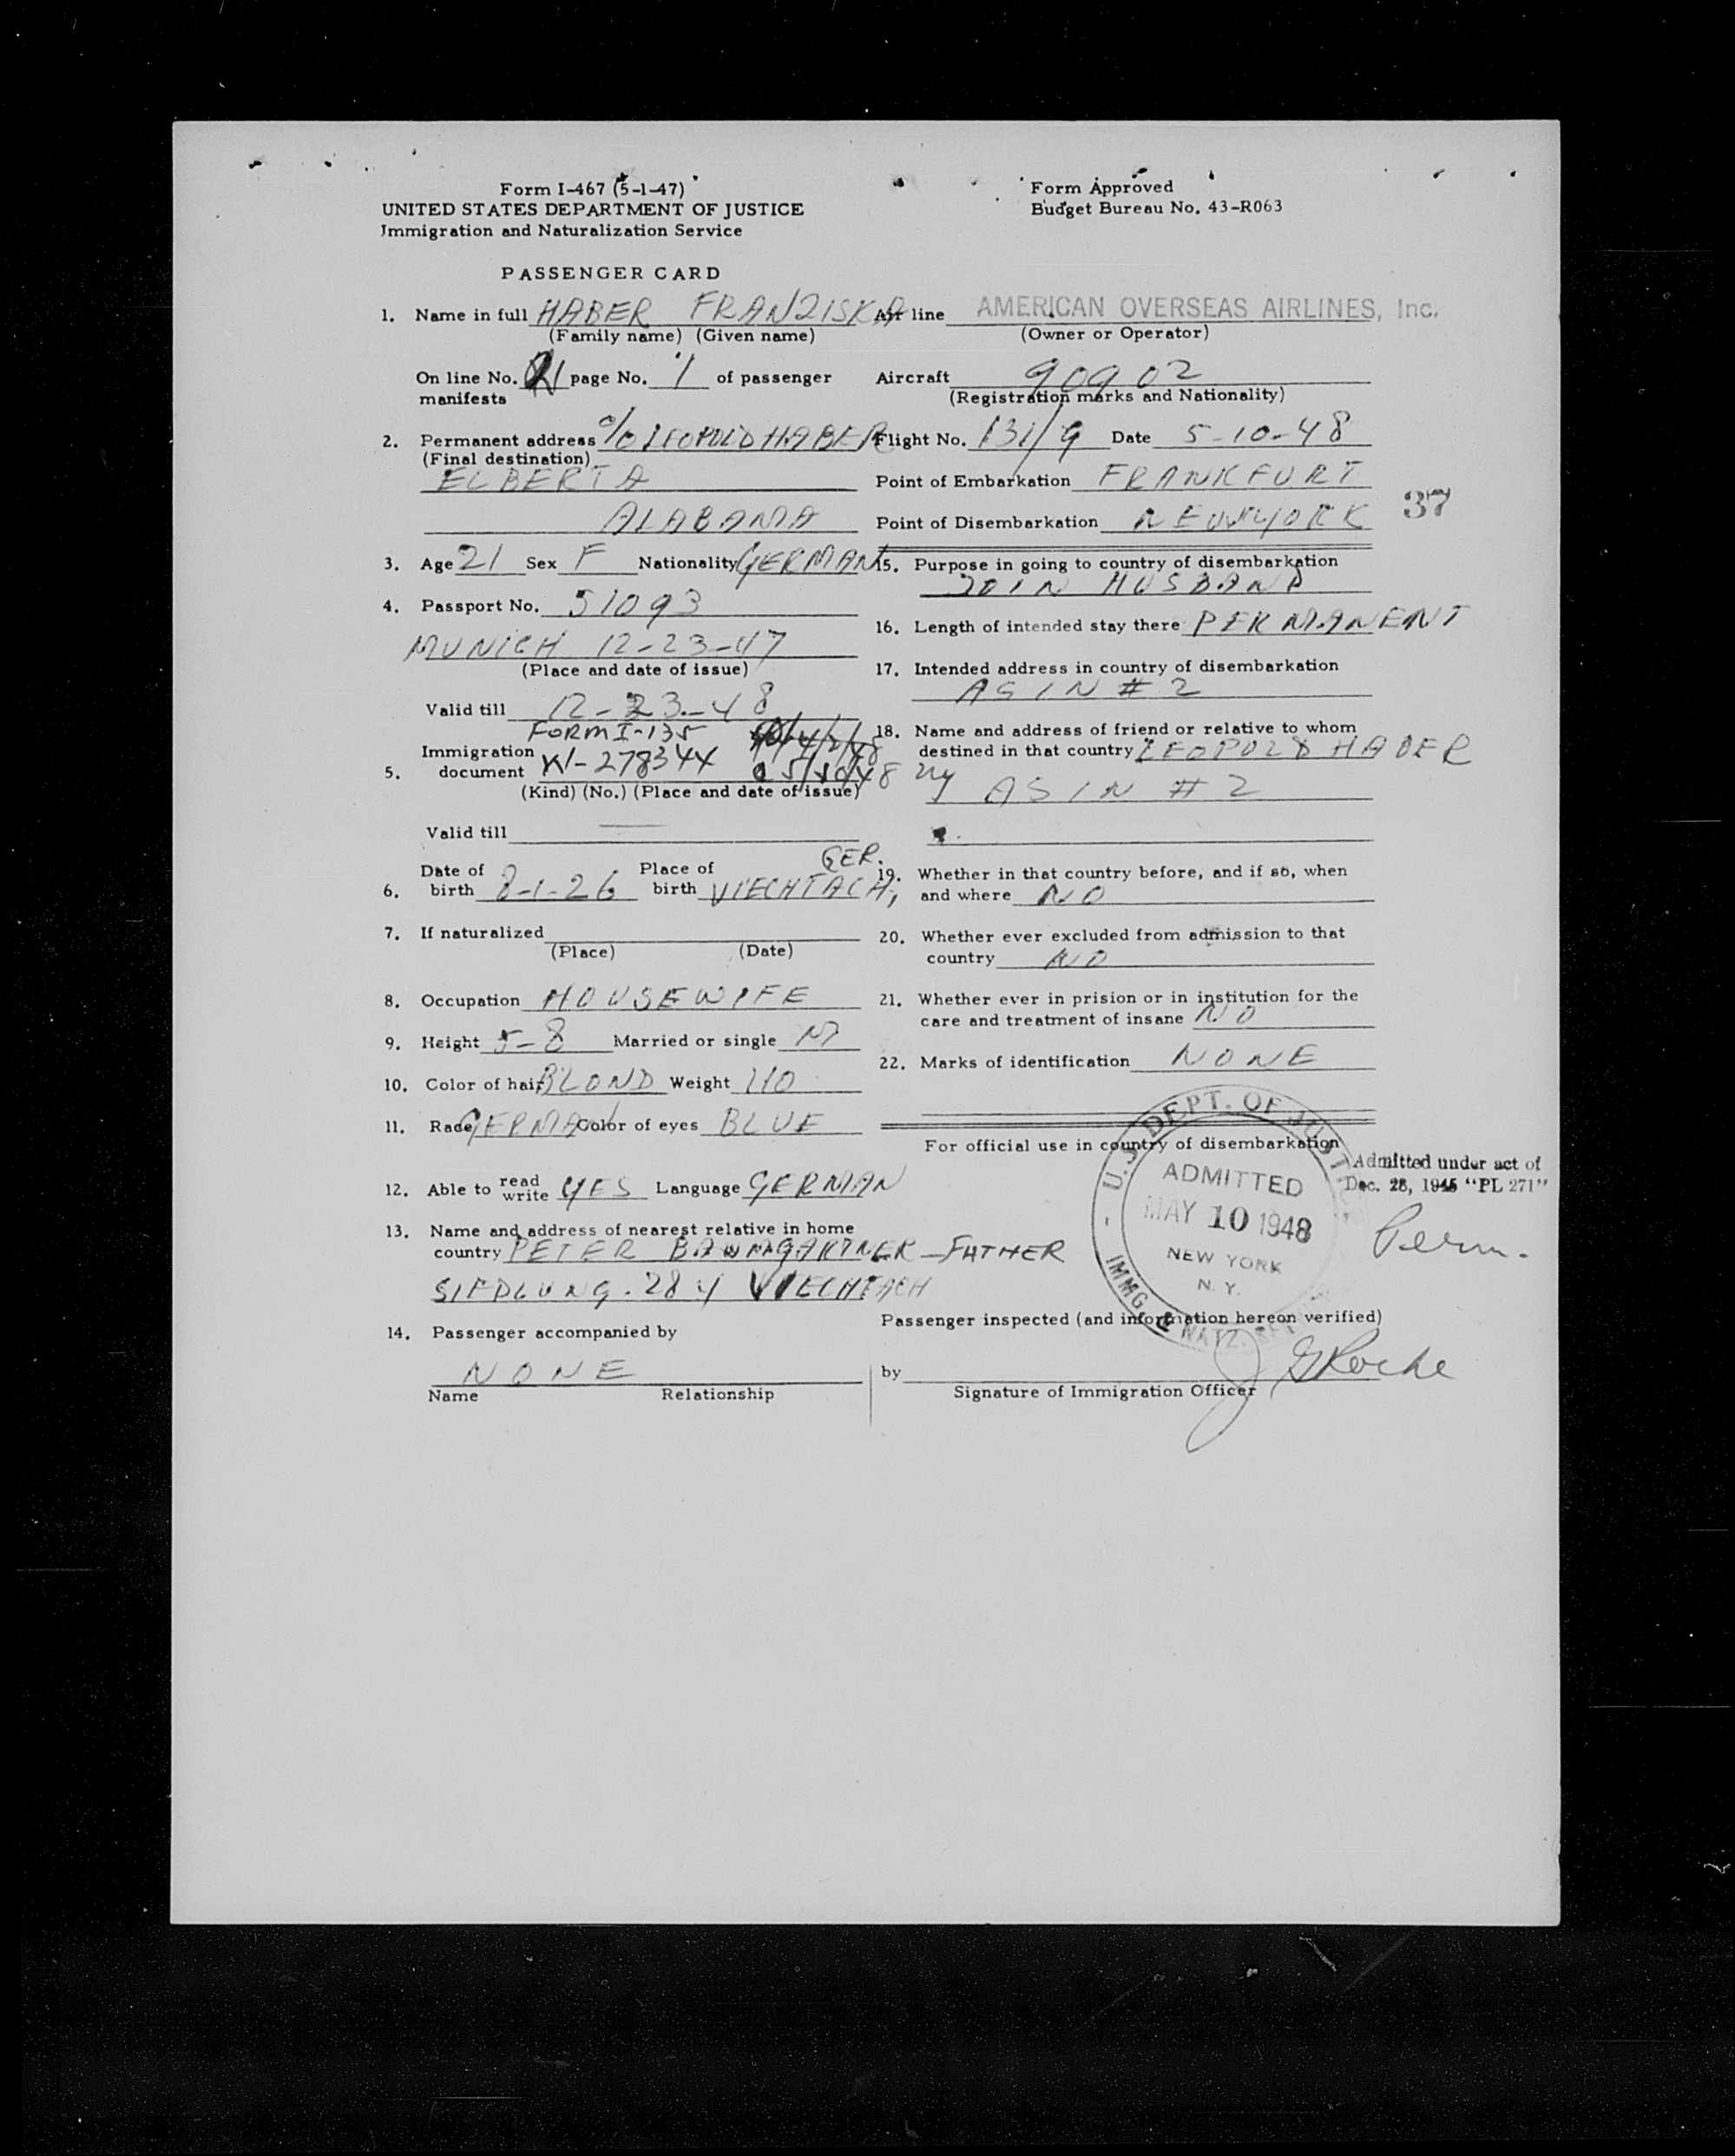 Form I-467 (5-1-47)
UNITED STATES DEPARTMENT OF JUSTICE
Immigration and Naturalization Service
Form Approved
Budget Bureau No. 43-R063
PASSENGER CARD
1. Name in full HABER FRANZISKA
(Family name) (Given name)
On line No. 1 page No. 1 of passenger
manifests
2. Permanent address c/o LEOPOLD HABER
(Final destination)
ELBERTA
ALABAMA
3. Age 21 Sex F Nationality GERMAN
4. Passport No. 51093
MUNICH 12-23-47
(Place and date of issue)
Valid till 12-23-48
FORM I-135
Immigration
5. document W-278344 5/10/48
(Kind) (No.) (Place and date of issue)
Valid till
GER.
Date of Place of
6. birth 8-1-26 birth VIECHTACH,
7. If naturalized
(Place) (Date)
8. Occupation HOUSEWIFE
9. Height 5-8 Married or single M
10. Color of hair BLOND Weight 110
11. Race GERMAN Color of eyes BLUE
12. Able to read write YES Language GERMAN
13. Name and address of nearest relative in home
country PETER BAUMGARTNER - FATHER
SIEDLUNG. 284 VIECHTACH
14. Passenger accompanied by
NONE
Name Relationship
Air line AMERICAN OVERSEAS AIRLINES, Inc.
(Owner or Operator)
Aircraft 90902
(Registration marks and Nationality)
Flight No. 131/9 Date 5-10-48
Point of Embarkation FRANKFURT
Point of Disembarkation NEW YORK
37
15. Purpose in going to country of disembarkation
JOIN HUSBAND
16. Length of intended stay there PERMANENT
17. Intended address in country of disembarkation
AS IN # 2
18. Name and address of friend or relative to whom
destined in that country LEOPOLD HABER
AS IN # 2
19. Whether in that country before, and if so, when
and where NO
20. Whether ever excluded from admission to that
country NO
21. Whether ever in prision or in institution for the
care and treatment of insane NO
22. Marks of identification NONE
For official use in country of disembarkation
U.S. DEPT. OF JUST
ADMITTED
MAY 10 1948
NEW YORK
N. Y.
IMMG. & NATZ.
Admitted under act of
Dec. 28, 1945 "PL 271"
Perm.
Passenger inspected (and information hereon verified)
by J G Roche
Signature of Immigration Officer